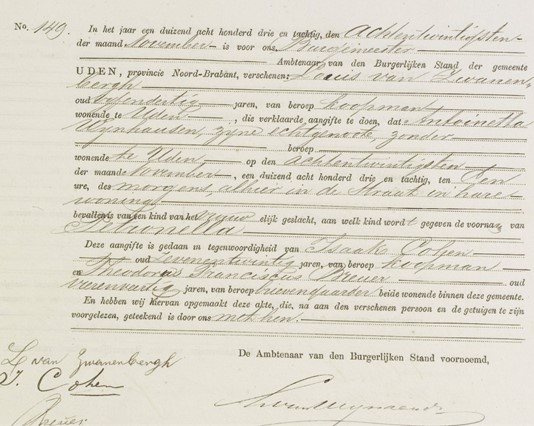 No. 149. In het jaar een duizend acht honderd drie en tachtig, den Achtentwintigsten
der maand November is voor ons, Burgemeester
Ambtenaar van den Burgerlijken Stand der gemeente
UDEN, provincie Noord-Brabant, verschenen: Louis van Zwanen
bergh
oud vyfendertig jaren, van beroep Koopman
wonende te Uden, die verklaarde aangifte te doen, dat Antoinetta
Wynhausen, zyne echtgenoote, zonder
beroep
wonende te Uden op den achtentwintigsten
der maand November, een duizend acht honderd drie en tachtig, ten Een
ure, des morgens, alhier in de Straat in hare
woning
bevallen is van een kind van het vrouwelijk geslacht, aan welk kind wordt gegeven de voornaam van
Petronella
Deze aangifte is gedaan in tegenwoordigheid van Isaak Cohen
oud zevenentwintig jaren, van beroep Koopman
en Theodorus Franciscus Breuer oud
vierenveertig jaren, van beroep brievengaarder beide wonende binnen deze gemeente.
En hebben wij hiervan opgemaakt deze akte, die, na aan den verschenen persoon en de getuigen te zijn
voorgelezen, geteekend is door ons met hen.
De Ambtenaar van den Burgerlijken Stand voornoemd,
L van Zwanenbergh
I. Cohen
Breuer